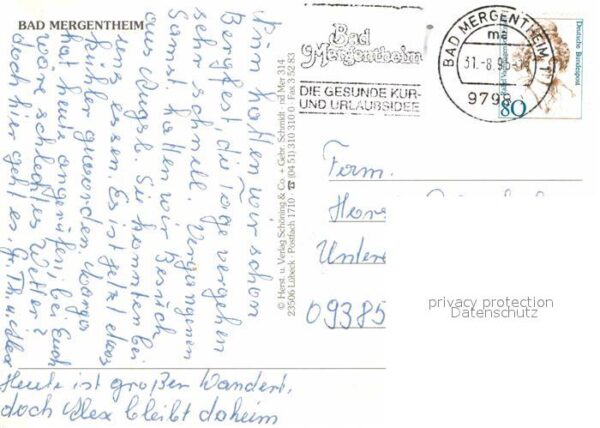 BAD MERGENTHEIM
Nun hatten wir schon
Bergfest, die Tage vergehen
sehr schnell. Vergangenen
Samst. hatten wir Besuch
aus Augsb. Sie konnten bei
uns essen. Es ist jetzt etwas
kühler geworden. Margo
hat heute angerufen, bei Euch
wäre schlechtes Wetter?
doch hier geht es, Gr. Th. u. Alex
Heute ist großer Wandert.
doch Alex bleibt daheim
© Herst. u. Verlag Schöning & Co. + Gebr. Schmidt · nd Mer 314
23506 Lübeck Postfach 1710 · ☎ (04 51) 310 310 0 · Fax 3 52 83
Bad
Mergentheim
DIE GESUNDE KUR-
UND URLAUBSIDEE
BAD MERGENTHEIM 1
ma
31.-8.95
9798
Deutsche Bundespost
80
Fam.
Unter
09385
privacy protection
Datenschutz